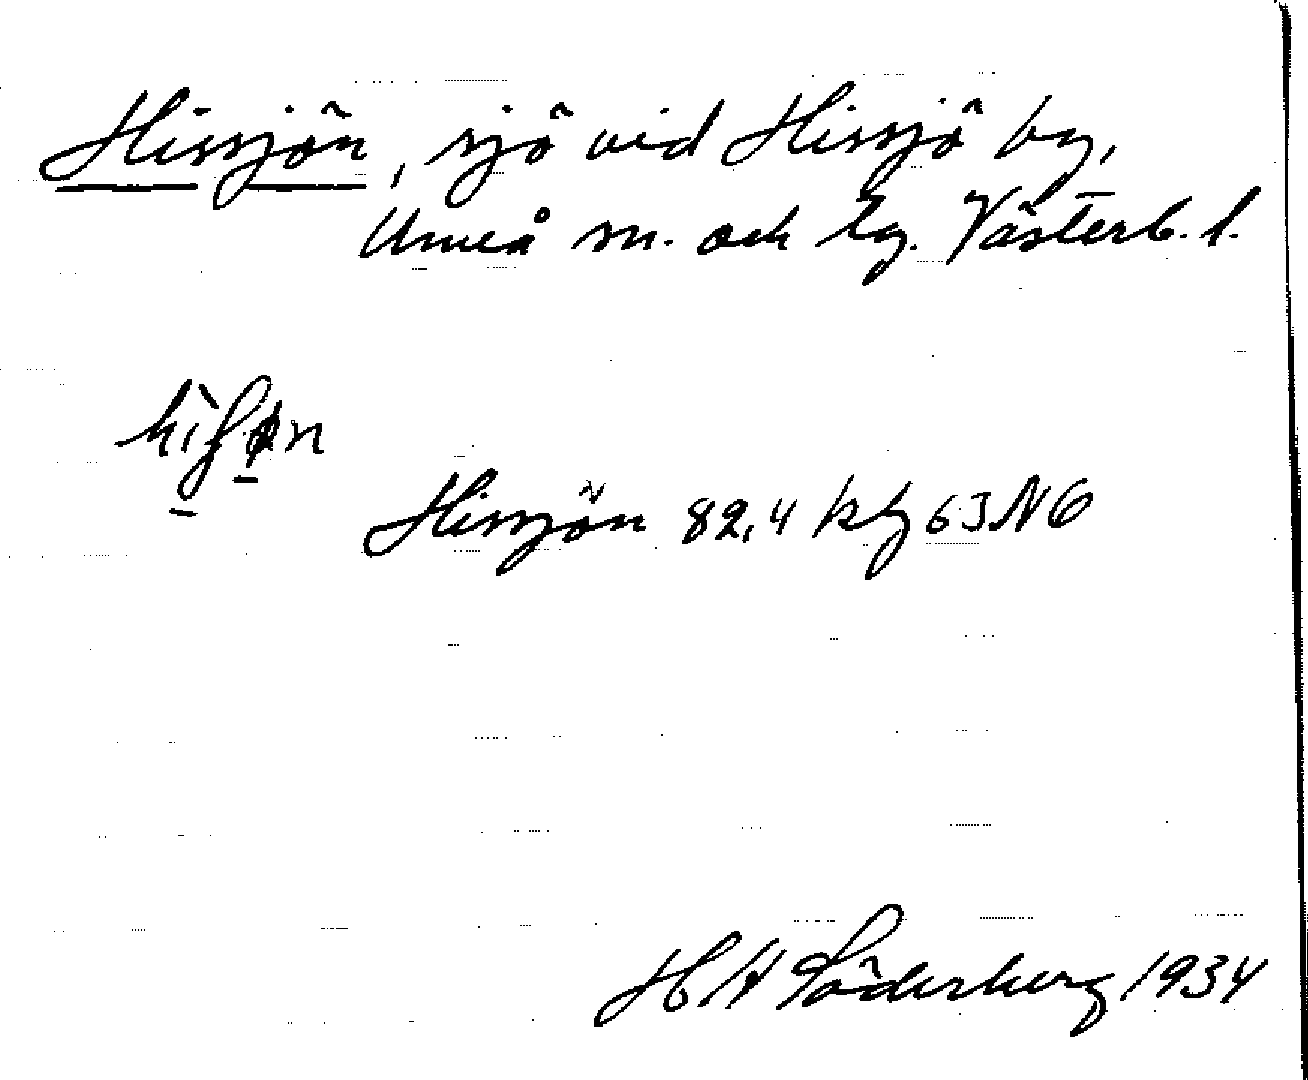 Hissjön, sjö vid Hissjö by,
Umeå sn. och tg. Västerb. l.
hìʃøn
Hissjön 82,4 kbj 63 NO
H A Söderberg 1934